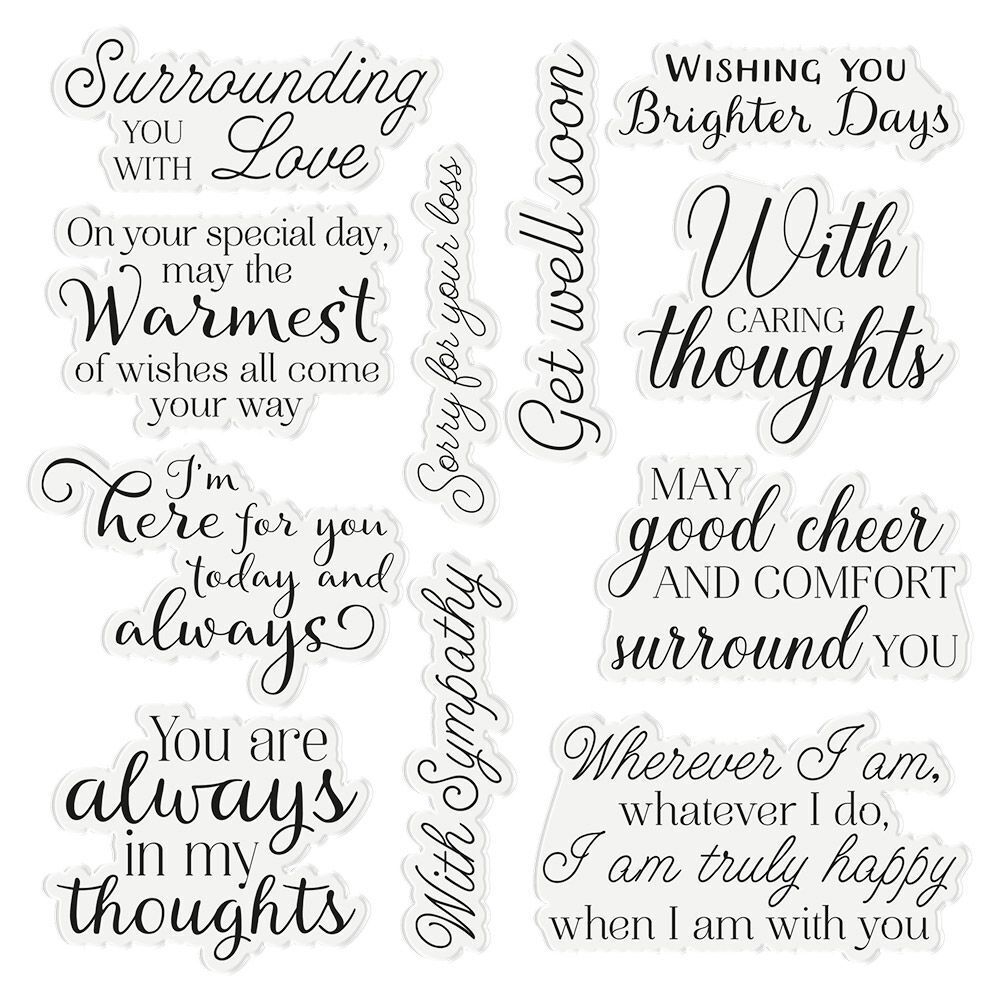 Surrounding
YOU
WITH Love
On your special day,
may the
Warmest
of wishes all come
your way
I'm
here for you
today and
always
You are
always
in my
thoughts
Sorry for your loss
With Sympathy
Get well soon
WISHING YOU
Brighter Days
With
CARING
thoughts
MAY
good cheer
AND COMFORT
surround YOU
Wherever I am,
whatever I do,
I am truly happy
when I am with you